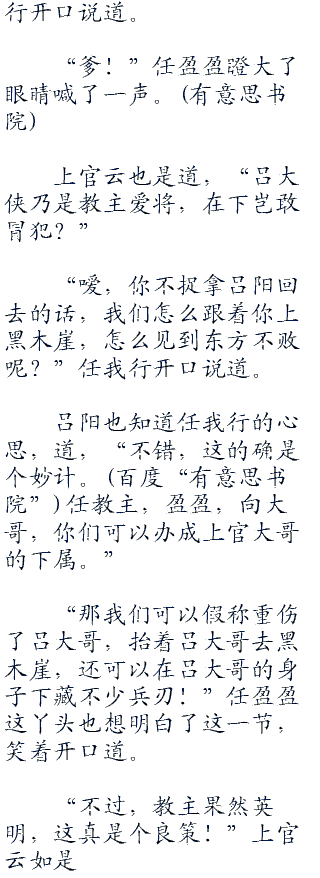 行开口说道。
“爹！”任盈盈瞪大了
眼睛喊了一声。(有意思书
院)
上官云也是道，“吕大
侠乃是教主爱将，在下岂敢
冒犯？”
“嗳，你不捉拿吕阳回
去的话，我们怎么跟着你上
黑木崖，怎么见到东方不败
呢？”任我行开口说道。
吕阳也知道任我行的心
思，道，“不错，这的确是
个妙计。(百度“有意思书
院”)任教主，盈盈，向大
哥，你们可以办成上官大哥
的下属。”
“那我们可以假称重伤
了吕大哥，抬着吕大哥去黑
木崖，还可以在吕大哥的身
子下藏不少兵刃！”任盈盈
这丫头也想明白了这一节，
笑着开口道。
“不过，教主果然英
明，这真是个良策！”上官
云如是